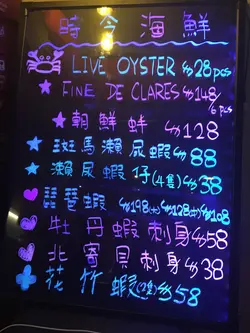 時令海鮮
LIVE OYSTER $28pcs
FINE DE CLARES $148/6pcs
朝鮮蚌 $128
斑馬瀨尿蝦 $88
瀨尿蝦仔(4隻) $38
琵琶蝦 $198(大) $128(中) $108
牡丹蝦刺身 $58
北寄貝刺身 $38
花竹蝦(2隻) $58